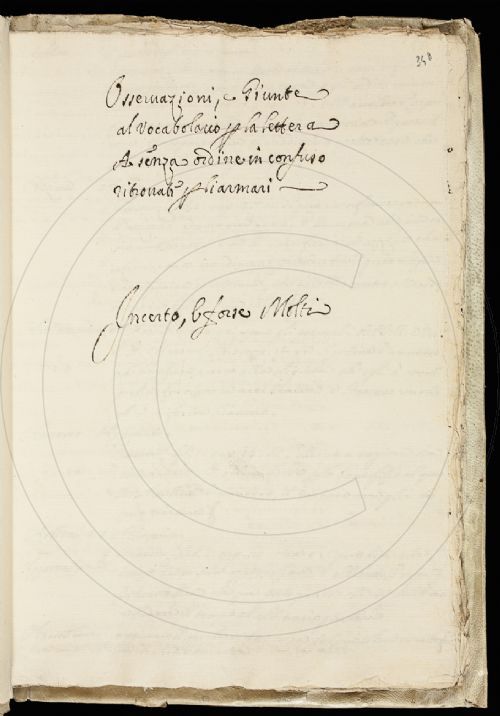 348
Osseruazioni, e Giunte
al Vocabolario p la lettera
A senza ordine in confuso
ritrouati p li armari
Incerto, e forse Molti